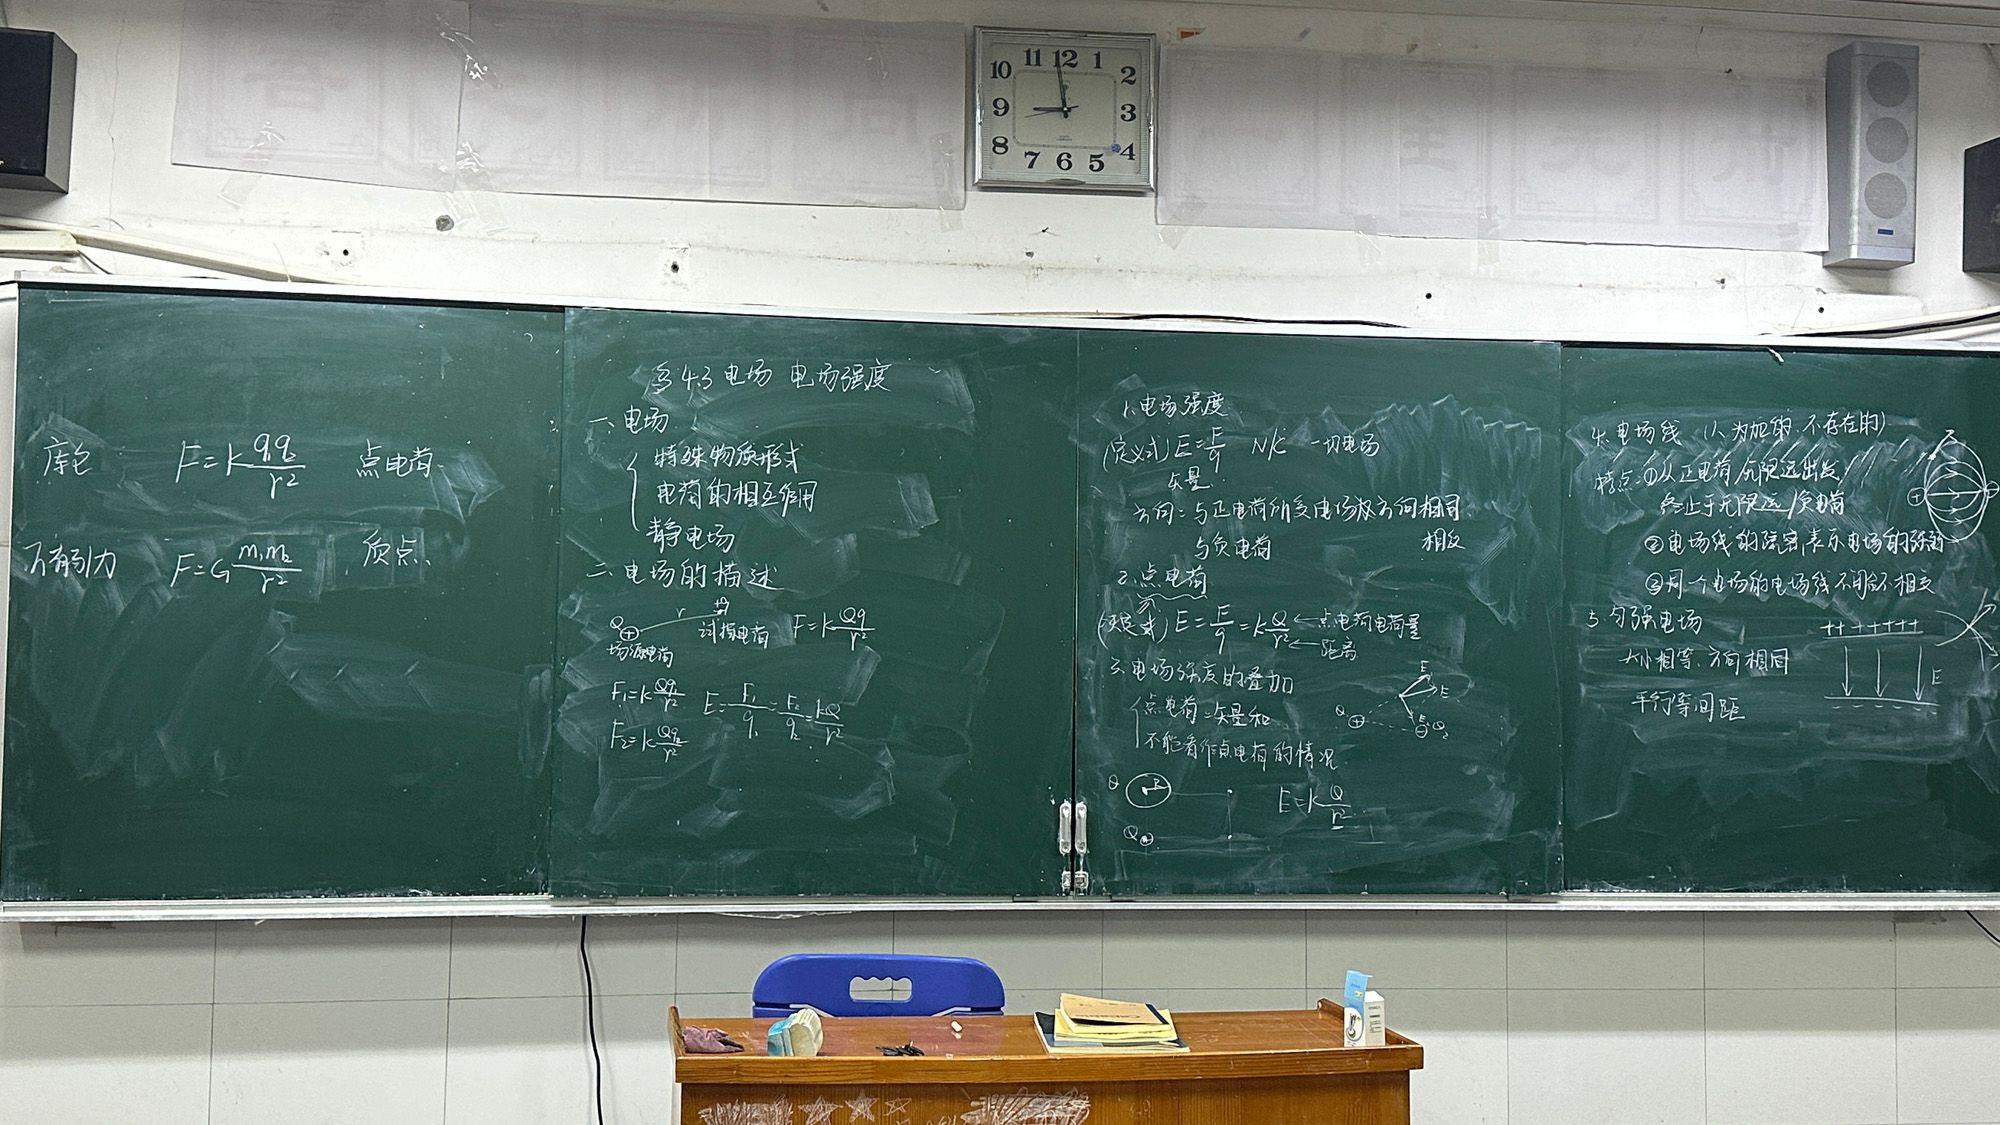 库仑 F=k q₁q₂/r² 点电荷.
万有引力 F=G m₁m₂/r² 质点.
§4.3 电场 电场强度
一、电场
特殊物质形式
电荷的相互作用
静电场
二、电场的描述
Q + r +q
场源电荷 试探电荷 F=k Qq/r²
F₁=k Qq₁/r²
F₂=k Qq₂/r²
E=F₁/q₁=F₂/q₂=kQ/r²
1、电场强度
(定义式) E=F/q N/C 一切电场
矢量.
方向：与正电荷所受电场力方向相同
与负电荷 相反
2、点电荷
(决定式) E=F/q=k Q/r² ←点电荷电荷量
←距离
3、电场强度的叠加
点电荷：矢量和
不能看作点电荷的情况.
Q₁ + E₁ E E₂ − Q₂
Q R
E=k Q/r²
Q
4、电场线 (人为加的、不存在的)
特点：①从正电荷/无限远出发
终止于无限远/负电荷
②电场线的疏密表示电场的强弱
③同一个电场的电场线不闭合不相交
5、匀强电场
大小相等、方向相同
平行等间距
+++++++
E
11 12 1
10 2
9 3
8 4
7 6 5